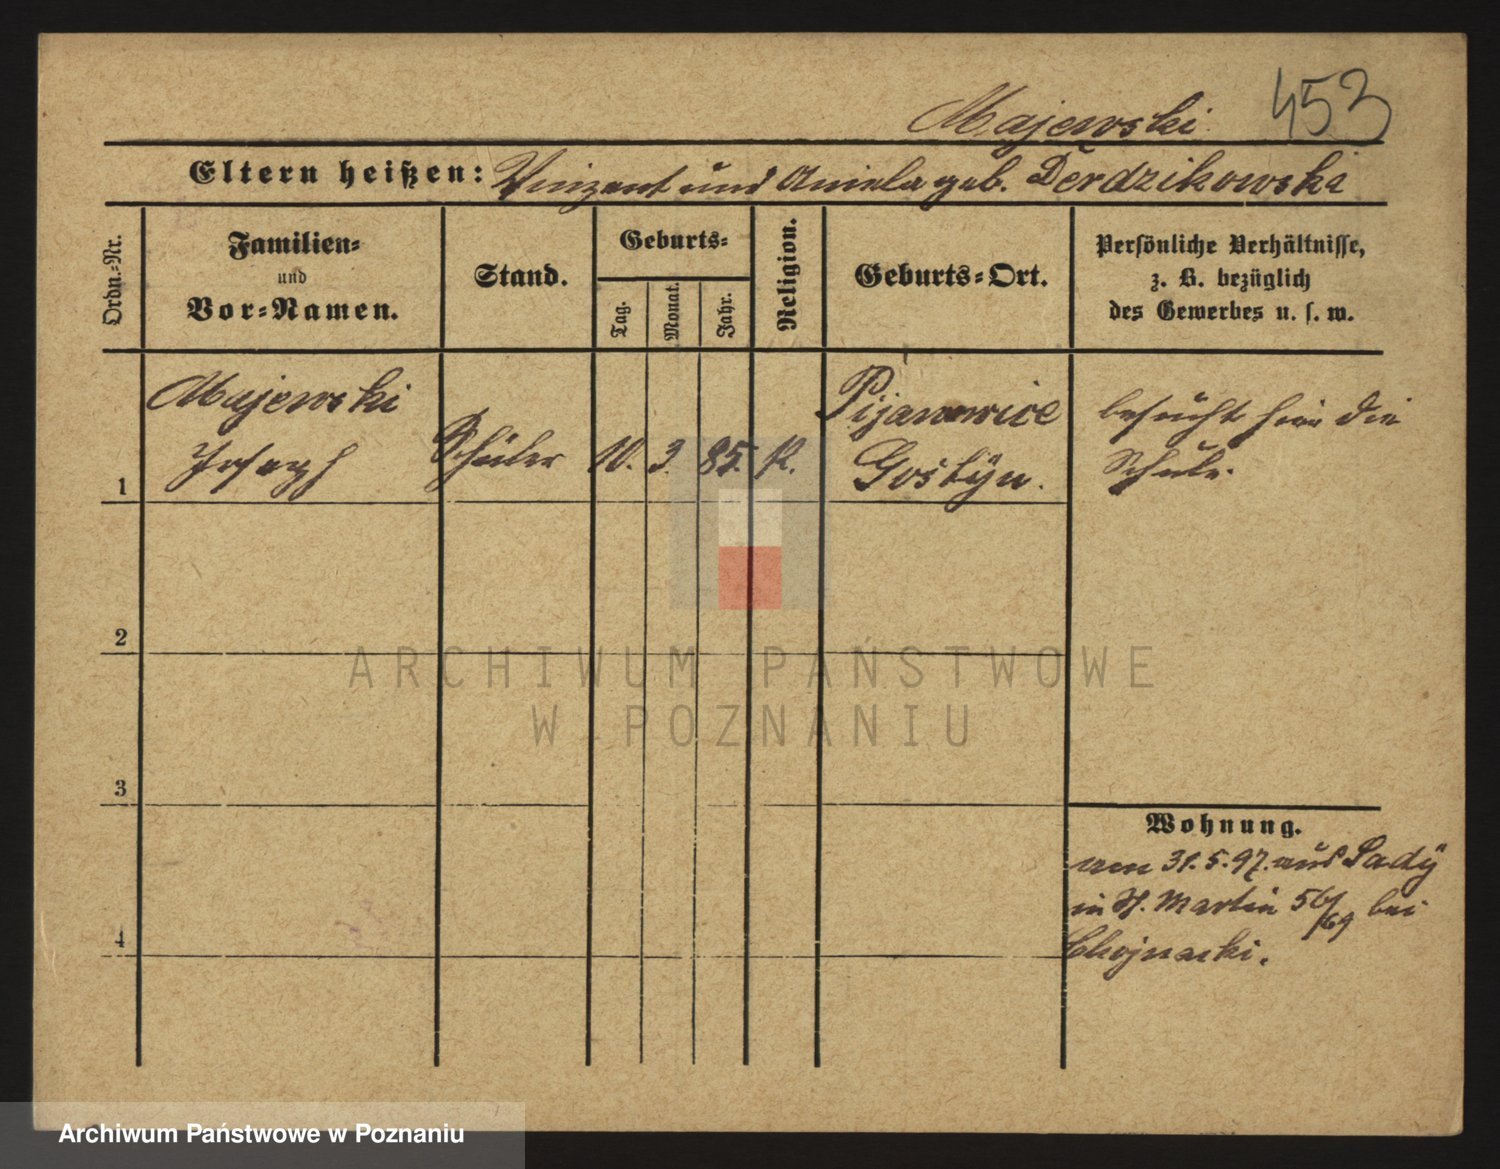 Majewski 453
Eltern heißen: Vinzent und Aniela geb. Derdzikowska
Ordn.-Nr.
Familien-
und
Vor-Namen.
Stand.
Geburts-
Tag.
Monat.
Jahr.
Religion.
Geburts-Ort.
Persönliche Verhältnisse,
z. B. bezüglich
des Gewerbes u. s. w.
1
Majewski
Joseph
Schüler
10. 3. 85. K.
Pijanowice
Gostÿn.
besucht hier die
Schule.
2
3
4
Wohnung.
am 31.5.97. aus Sadÿ
in St. Martin 56/69 bei
Chojnacki.
ARCHIWUM PAŃSTWOWE
W POZNANIU
Archiwum Państwowe w Poznaniu